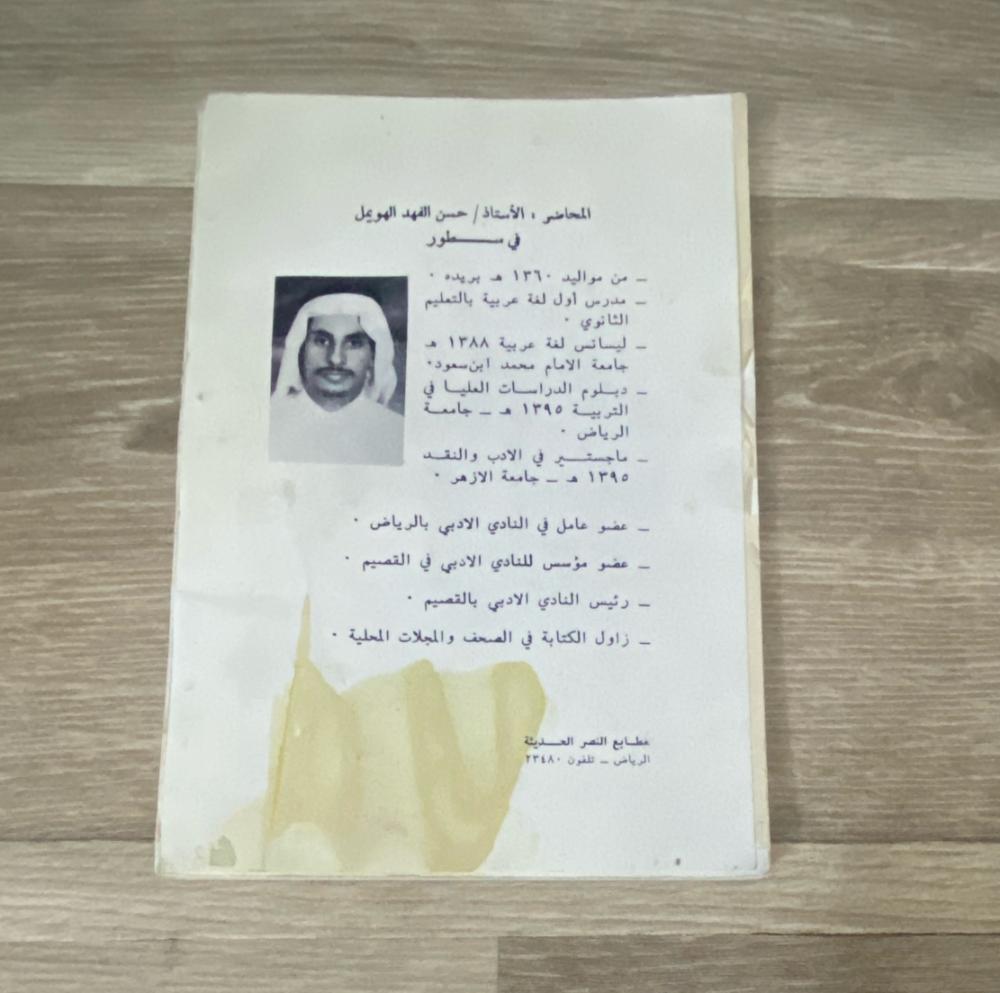 المحاضر : الأستاذ / حسن الفهد الهويمل
في سـطور
ـ من مواليد ١٣٦٠ هـ بريده ٠
ـ مدرس أول لغة عربية بالتعليم
الثانوي ٠
ـ ليسانس لغة عربية ١٣٨٨ هـ
جامعة الامام محمد ابن سعود٠
ـ دبلوم الدراسات العليا في
التربية ١٣٩٥ هـ ـ جامعة
الرياض ٠
ـ ماجستير في الادب والنقد
١٣٩٥ هـ ـ جامعة الازهر ٠
ـ عضو عامل في النادي الادبي بالرياض ٠
ـ عضو مؤسس للنادي الادبي في القصيم ٠
ـ رئيس النادي الادبي بالقصيم ٠
ـ زاول الكتابة في الصحف والمجلات المحلية ٠
مطابع النصر الحديثة
الرياض ـ تلفون ٢٣٤٨٠